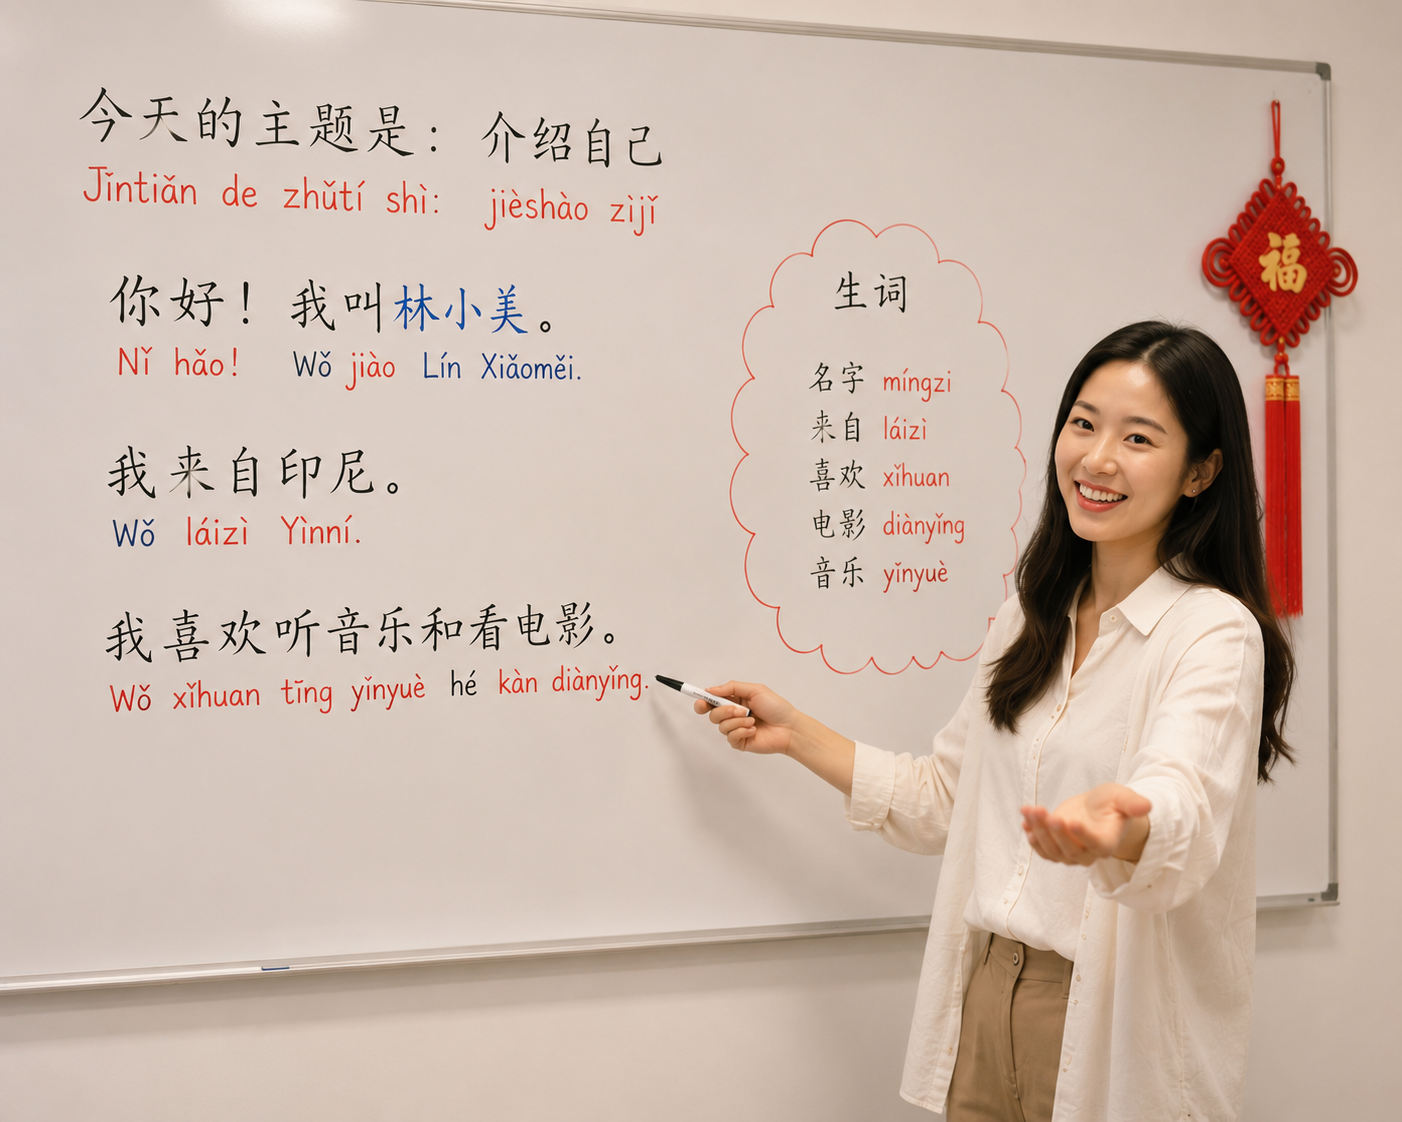 今天的主题是： 介绍自己
Jǐntiǎn de zhǔtí shì: jièshào zìjǐ
你好！ 我叫林小美。
Nǐ hǎo! Wǒ jiào Lín Xiǎoměi.
我来自印尼。
Wǒ láizì Yìnní.
我喜欢听音乐和看电影。
Wǒ xǐhuan tīng yǐnyuè hé kàn diànyǐng.
生词
名字 míngzi
来自 láizì
喜欢 xǐhuan
电影 diànyǐng
音乐 yǐnyuè
福